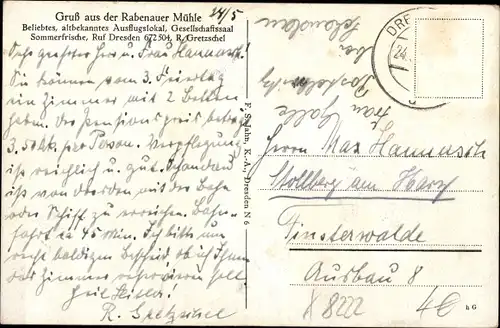 Gruß aus der Rabenauer Mühle
24/5
Beliebtes, altbekanntes Ausflugslokal, Gesellschaftssaal
Sommerfrische, Ruf Dresden 672504, R. Gretzschel
Sehr geehrter Herr u. Frau Hannusch!
Sie können vom 3. Feiertag
ein Zimmer mit 2 Betten
haben. Der Pensionspreis beträgt
3.50 Mk per Person. Verpflegung
ist reichlich u. gut. Schandau
ist von Dresden mit der Bahn
oder Schiff zu erreichen. Bahn-
fahrt ca 45 Min. Ich bitte um
recht baldigen Bescheid ob ich Ihnen
das Zimmer reservieren soll
Heil Hitler!
R. Gretzschel
F. S. Jahn, K.-A., Dresden N 6
Schandau
bei
Frau
DRE
24.
Herrn Max Hannusch
Stollberg am Harz
Finsterwalde
Ausbau 8
h G
X 8222
4€